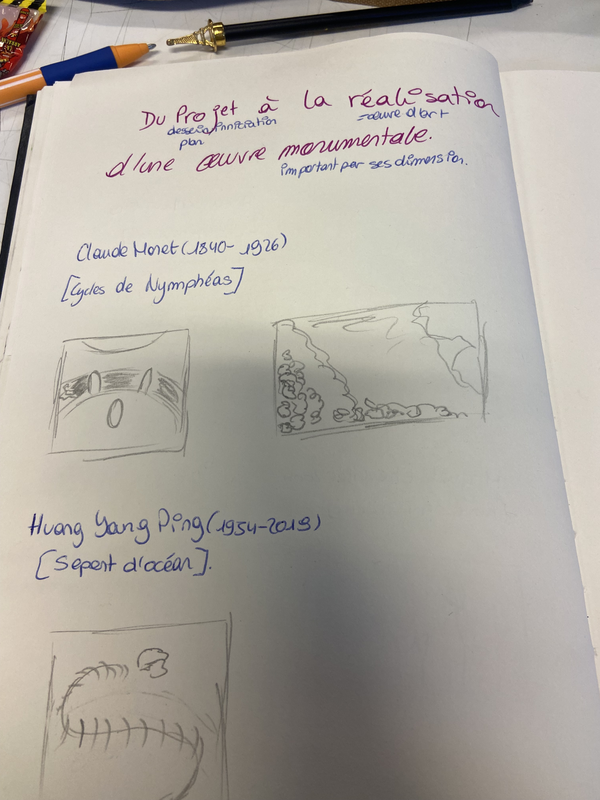 Du Projet à la réalisation
dessein/intention =œuvre d'art
plan
d'une œuvre monumentale.
important par ses dimension.
Claude Monet (1840-1926)
[Cycles de Nymphéas]
Huang Yang Ping (1954-2019)
[Sepent d'océan].